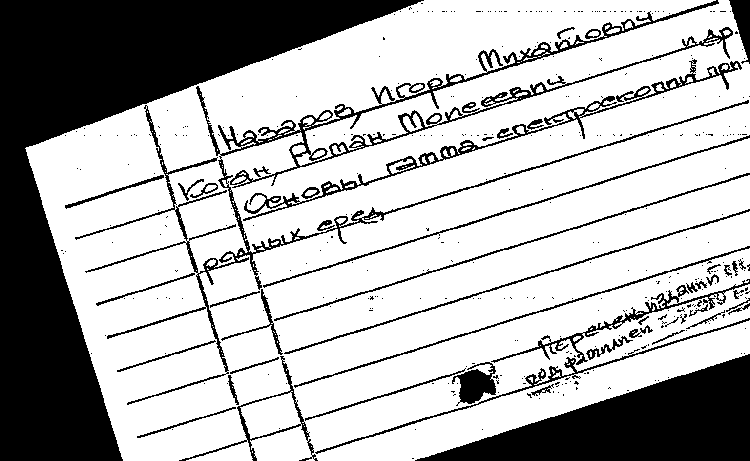 Назаров, Игорь Михайлович
Коган, Роман Моисеевич и др.
Основы гамма-спектроскопии при-
родных сред
Перечень изданий
под фамилией